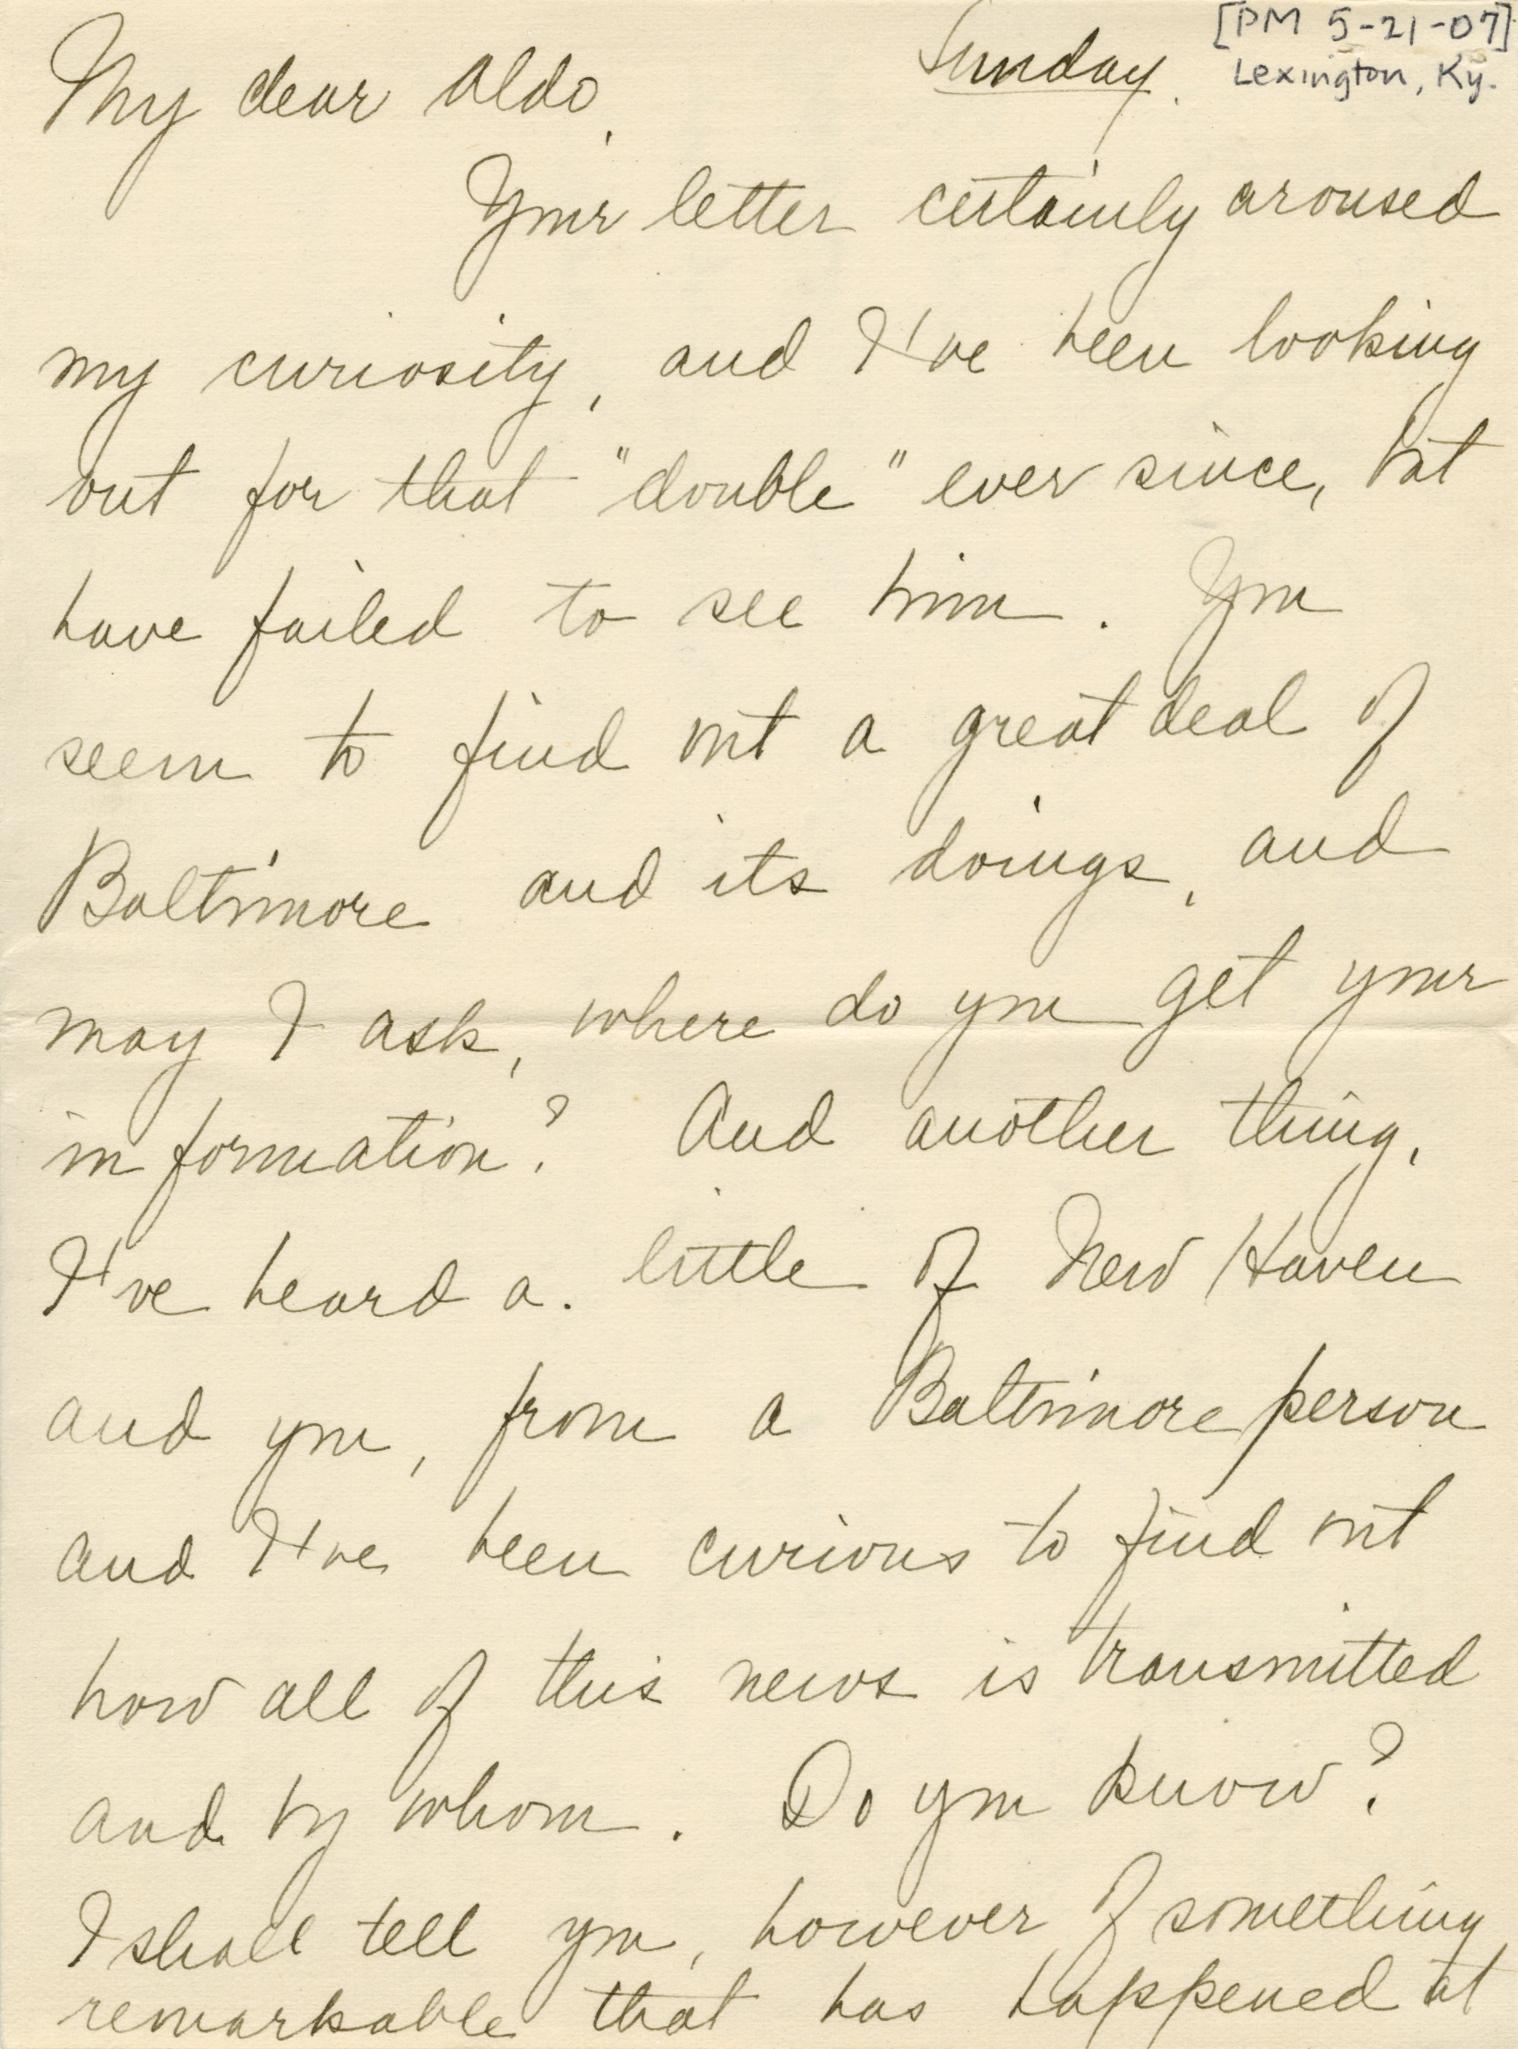 [PM 5-21-07]
Sunday. Lexington, Ky.
My dear Aldo,
Your letter certainly aroused
my curiosity, and I've been looking
out for that "double" ever since, but
have failed to see him. You
seem to find out a great deal of
Baltimore and its doings, and
may I ask, where do you get your
information? And another thing,
I've heard a. little of New Haven
and you, from a Baltimore person
and I've been curious to find out
how all of this news is transmitted
and by whom. Do you know?
I shall tell you, however of something
remarkable that has happened at